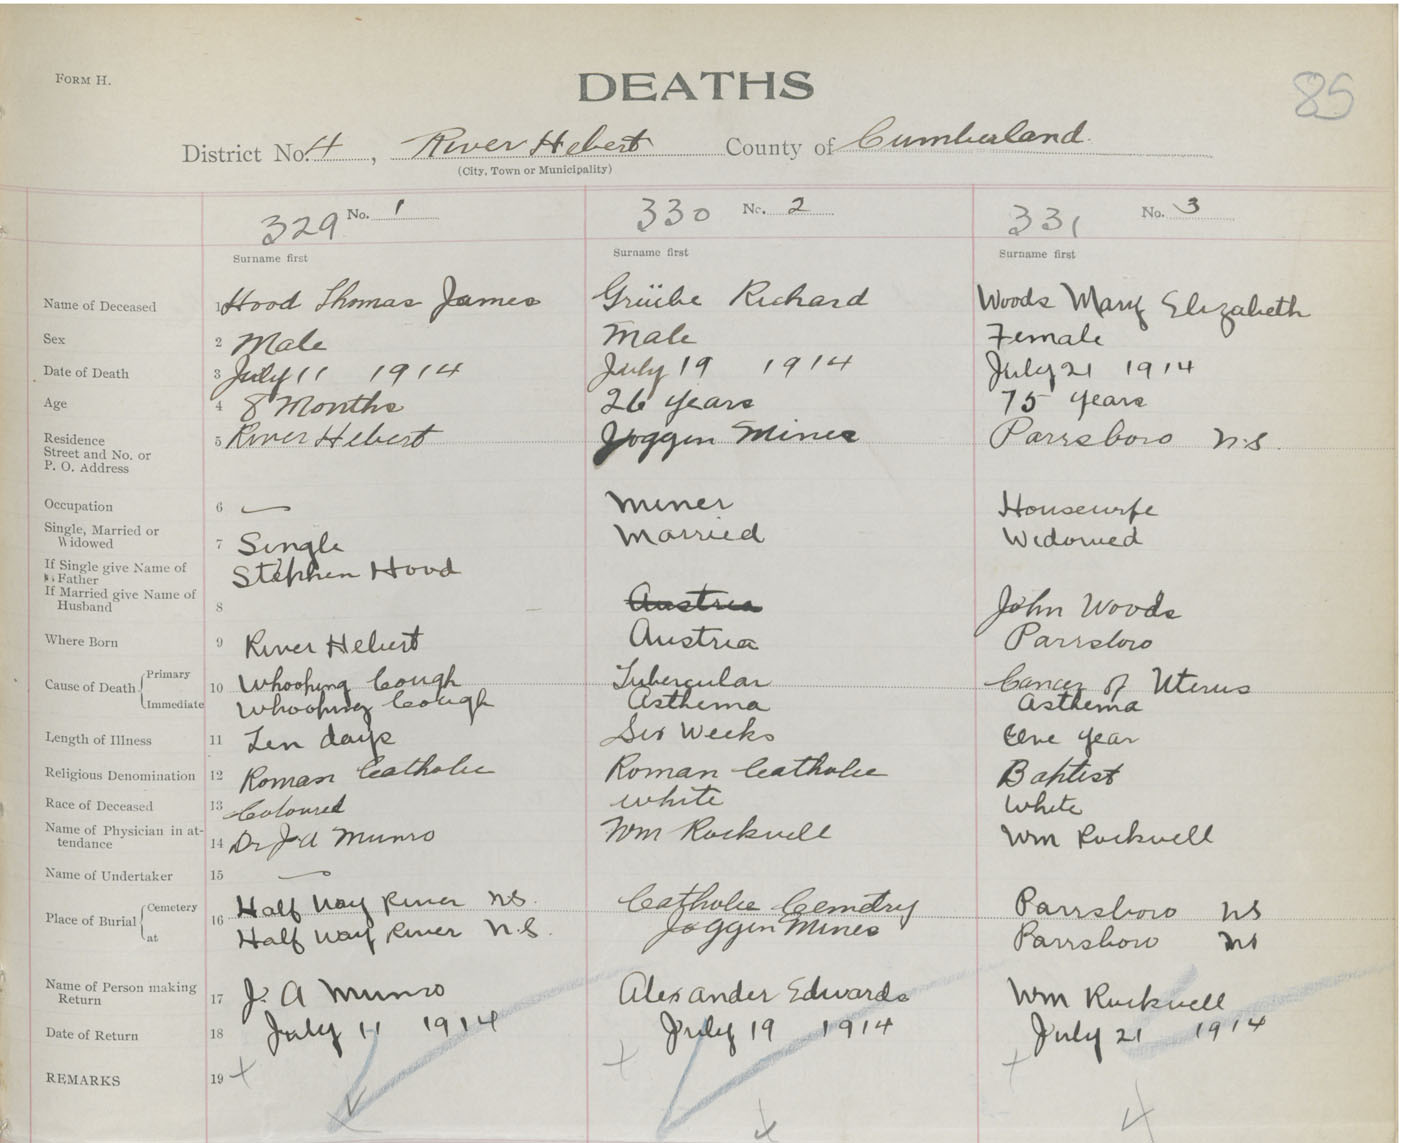 FORM H.
DEATHS
85
District No. 4, River Hebert County of Cumberland
(City, Town or Municipality)
329 No. 1 330 No. 2 331 No. 3
Surname first Surname first Surname first
Name of Deceased 1 Hood Thomas James Grüibe Richard Woods Mary Elizabeth
Sex 2 Male Male Female
Date of Death 3 July 11 1914 July 19 1914 July 21 1914
Age 4 8 Months 26 years 75 years
Residence 5 River Hebert Joggin Mines Parrsboro N.S.
Street and No. or
P. O. Address
Occupation 6 — Miner Housewife
Single, Married or
Widowed 7 Single Married Widowed
If Single give Name of
Father Stephen Hood
If Married give Name of
Husband 8 Austria John Woods
Where Born 9 River Hebert Austria Parrsboro
Cause of Death { Primary 10 Whooping Cough Tubercular Cancer of Uterus
Immediate Whooping Cough Asthema Asthema
Length of Illness 11 Ten days Six Weeks One year
Religious Denomination 12 Roman Catholic Roman Catholic Baptist
Race of Deceased 13 Coloured White White
Name of Physician in at-
tendance 14 Dr J A Munro Wm Rockwell Wm Rockwell
Name of Undertaker 15 —
Place of Burial { Cemetery 16 Half Way River N.S. Catholic Cemetry Parrsboro NS
at Half Way River N.S. Joggin Mines Parrsboro NS
Name of Person making
Return 17 J. A Munro Alexander Edwards Wm Rockwell
Date of Return 18 July 11 1914 July 19 1914 July 21 1914
REMARKS 19